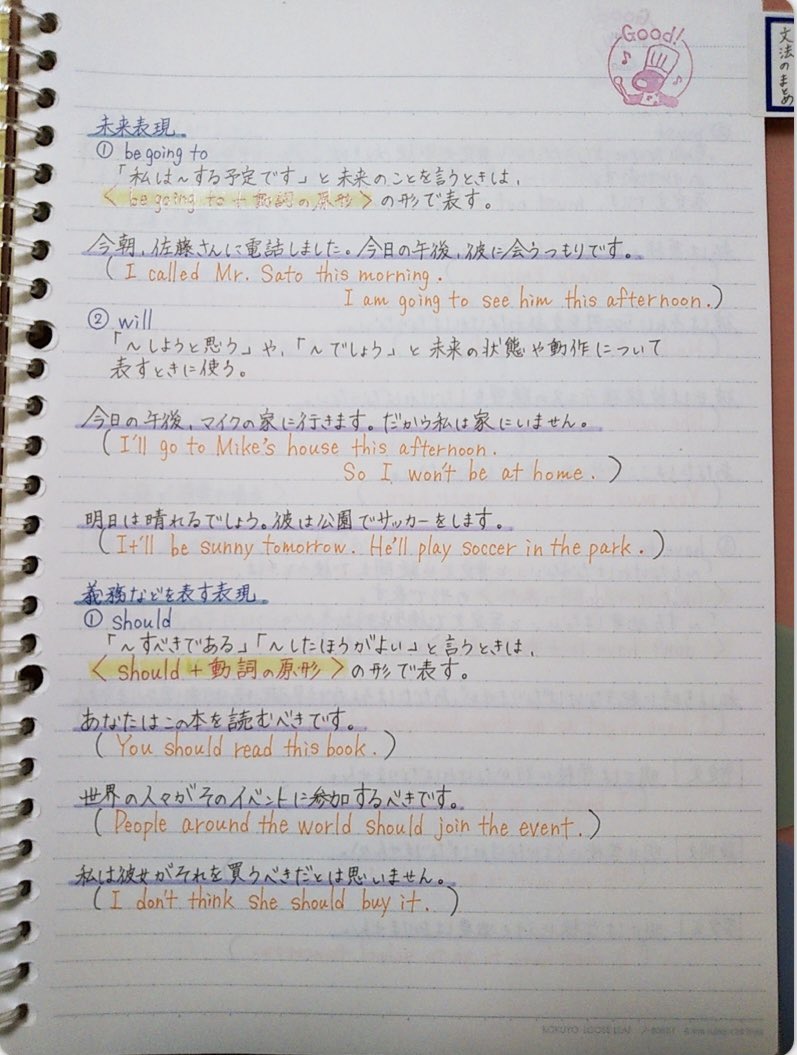 Good!
文法のまとめ
未来表現
① be going to
「私は～する予定です」と未来のことを言うときは、
< be going to + 動詞の原形 > の形で表す。
今朝、佐藤さんに電話しました。今日の午後、彼に会うつもりです。
( I called Mr. Sato this morning.
I am going to see him this afternoon. )
② will
「～しようと思う」や、「～でしょう」と未来の状態や動作について
表すときに使う。
今日の午後、マイクの家に行きます。だから私は家にいません。
( I'll go to Mike's house this afternoon.
So I won't be at home. )
明日は晴れるでしょう。彼は公園でサッカーをします。
( It'll be sunny tomorrow. He'll play soccer in the park. )
義務などを表す表現
① should
「～すべきである」「～したほうがよい」と言うときは、
< should + 動詞の原形 > の形で表す。
あなたはこの本を読むべきです。
( You should read this book. )
世界の人々がそのイベントに参加するべきです。
( People around the world should join the event. )
私は彼女がそれを買うべきだとは思いません。
( I don't think she should buy it. )
KOKUYO LOOSE-LEAF